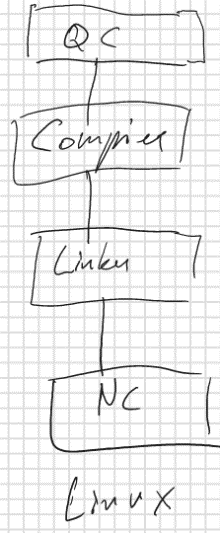 QC
Compiler
Linker
NC
Linux